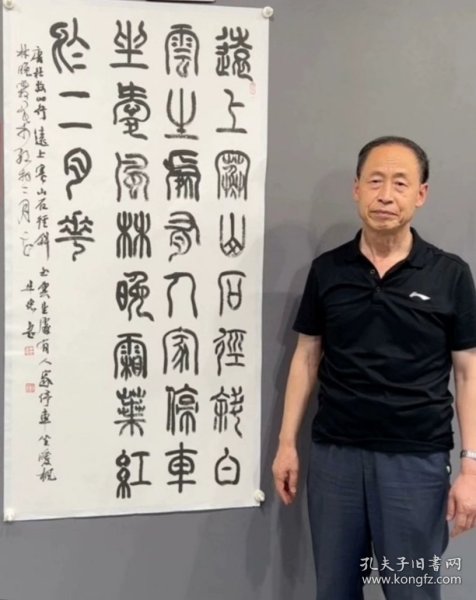 遠上寒山石徑斜白
雲生處有人家停車
坐愛風林晚霜葉紅
於二月華
唐杜牧山行遠上寒山石徑斜白雲生處有人家停車坐愛楓
林晚霜葉紅於二月花
書
孔夫子旧书网
www.kongfz.com